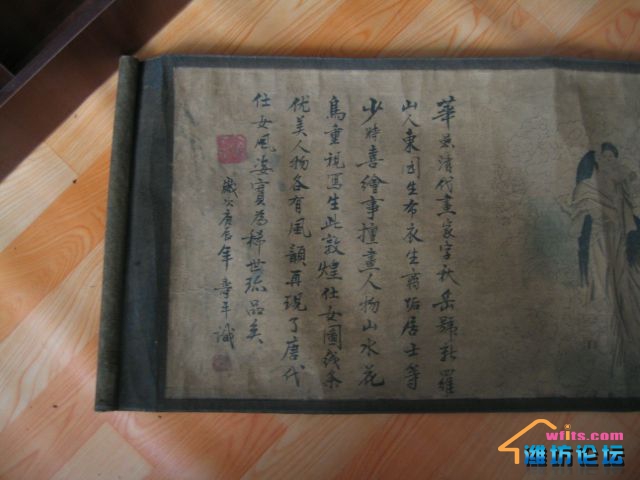 華嵒清代畫家字秋岳號新羅
山人東园生布衣生离垢居士等
少時喜繪事擅畫人物山水花
鳥重視寫生此敦煌仕女圖线条
优美人物各有風韻再現了唐代
仕女風姿實為稀世珎品矣
歲次庚辰年 壽平識
wfits.com
潍坊论坛